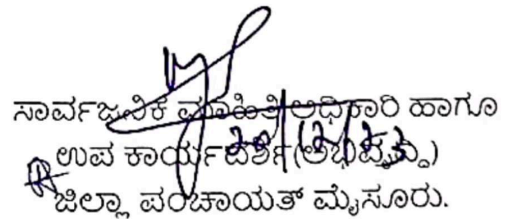 ಸಾರ್ವಜನಿಕ ಮಾಹಿತಿ ಅಧಿಕಾರಿ ಹಾಗೂ
20/12/23
ಉಪ ಕಾರ್ಯದರ್ಶಿ(ಅಭಿವೃದ್ಧಿ)
ಜಿಲ್ಲಾ ಪಂಚಾಯತ್ ಮೈಸೂರು.